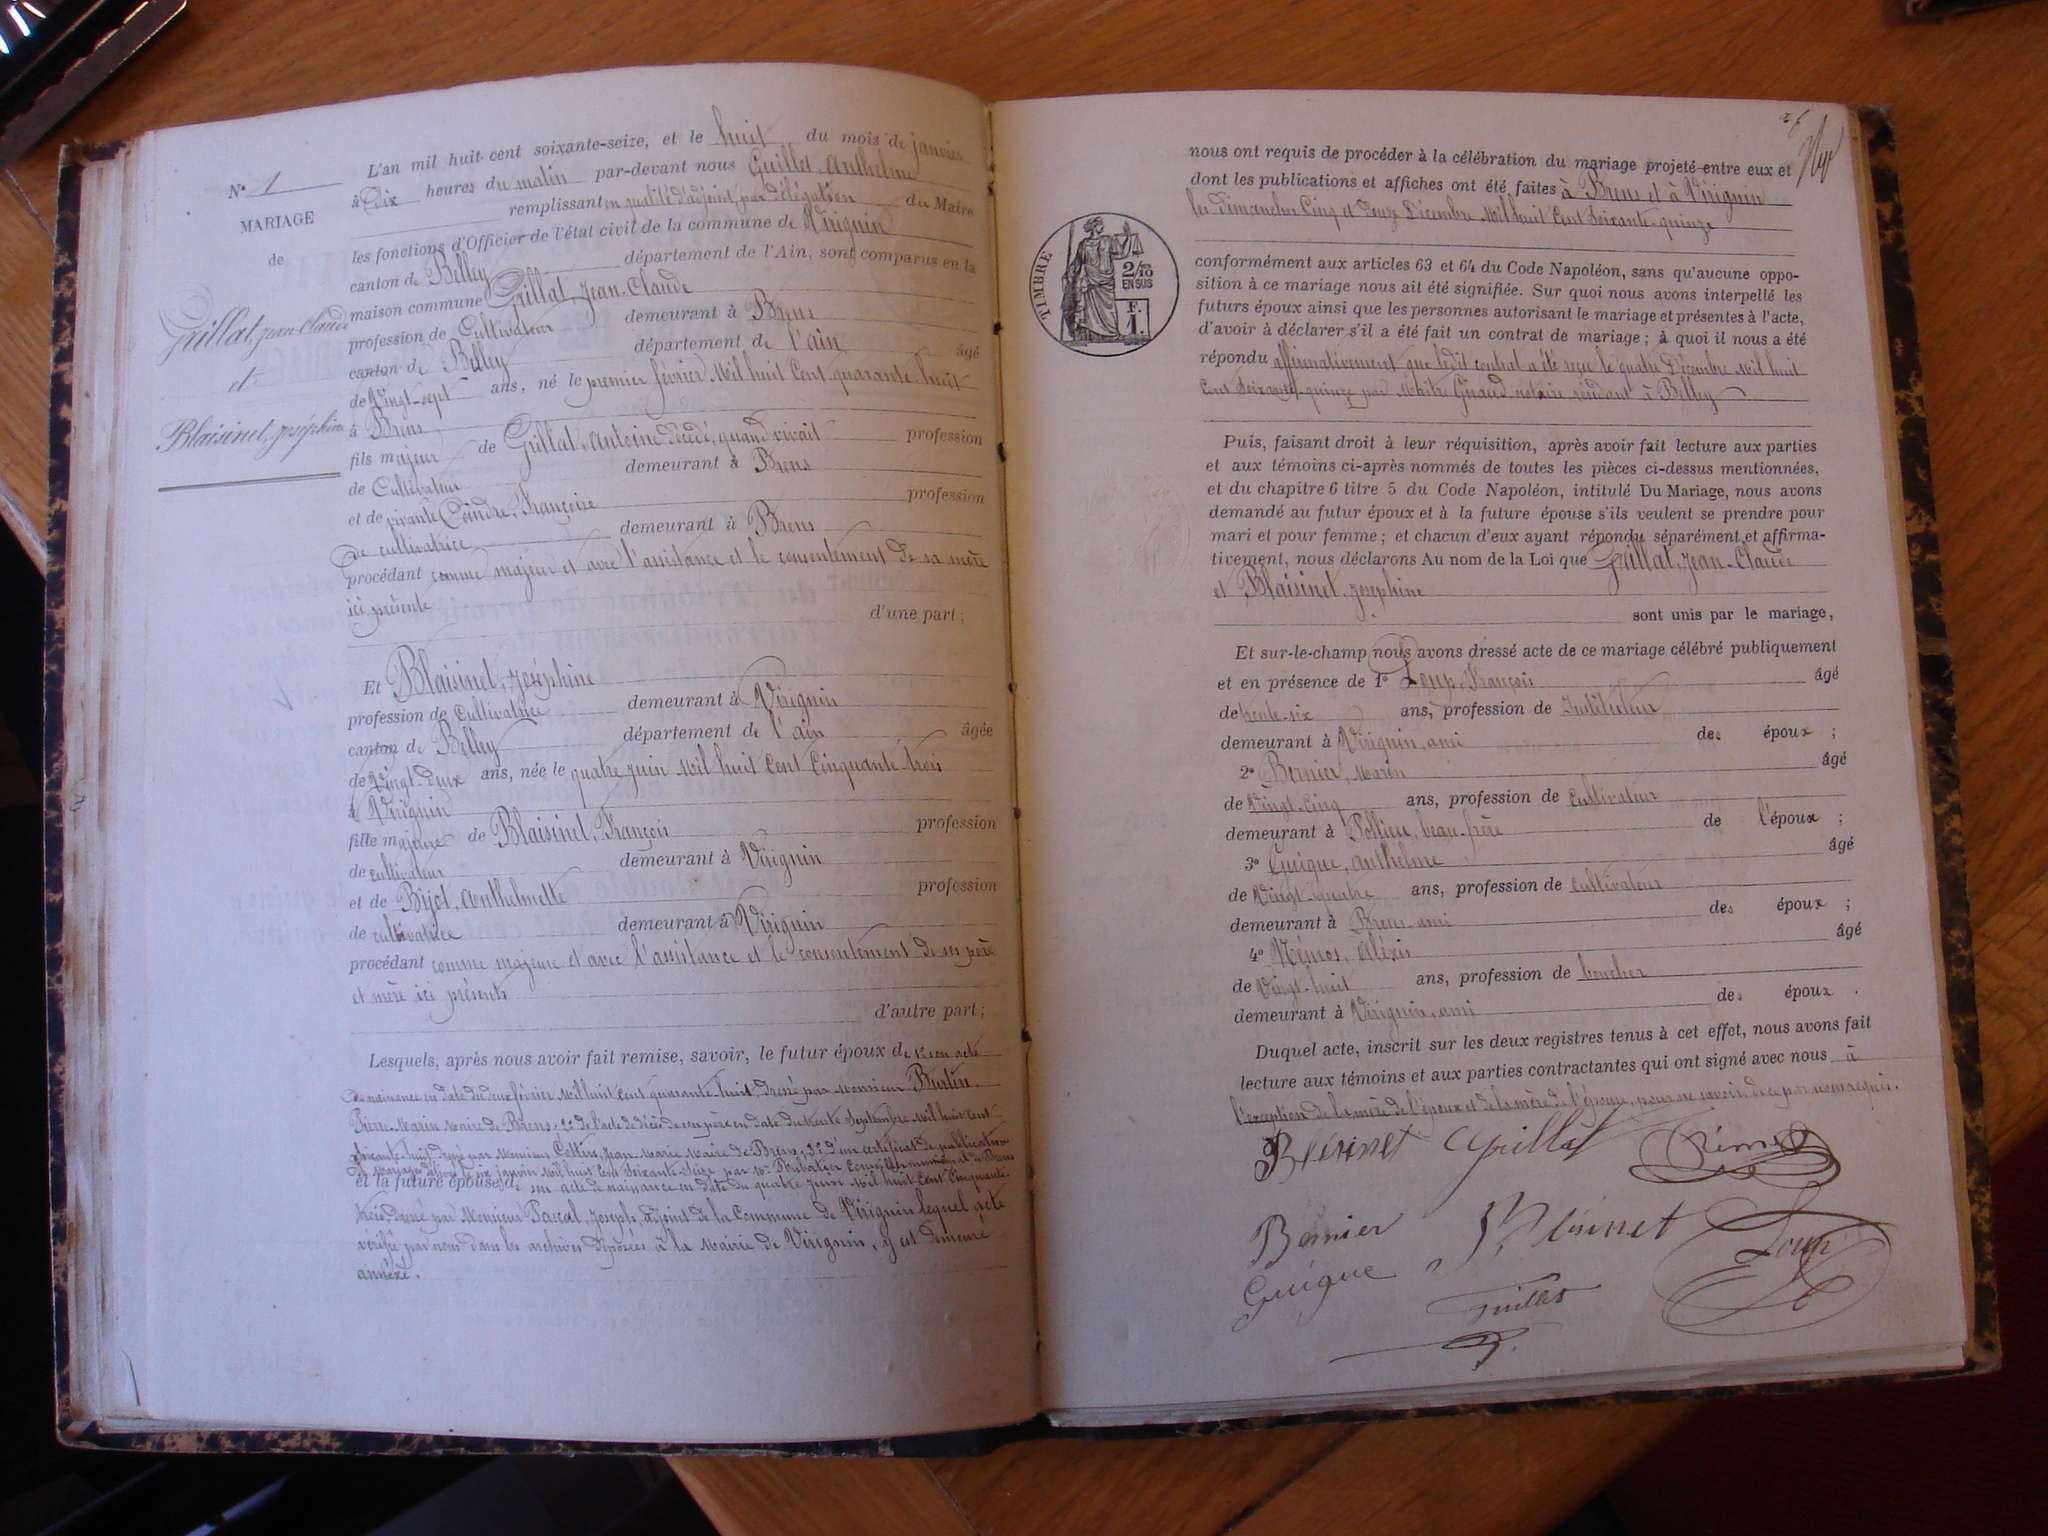 N° 1
MARIAGE
de
Grillat, Jean-Claude
et
Blaisinet, Joséphine
L'an mil huit cent soixante-seize, et le huit du mois de janvier
à Dix heures du matin par-devant nous Guillet, Anthelme
remplissant en qualité d'adjoint, par délégation du Maire
les fonctions d'Officier de l'état civil de la commune de Virignin
canton de Belley département de l'Ain, sont comparus en la
maison commune Grillat, Jean-Claude
profession de Cultivateur demeurant à Brens
canton de Belley département de l'ain âgé
de Vingt-sept ans, né le premier février Mil huit Cent quarante-huit
à Brens
fils majeur de Grillat, Antoine décédé, quand vivait profession
de Cultivateur demeurant à Brens
et de vivante Coindre, Françoise profession
de cultivatrice demeurant à Brens
procédant comme majeur et avec l'assistance et le consentement de sa mère
ici présente
d'une part;
Et Blaisinet, Joséphine
profession de Cultivatrice demeurant à Virignin
canton de Belley département de l'ain âgée
de Vingt-deux ans, née le quatre juin Mil huit Cent Cinquante-trois
à Virignin
fille majeure de Blaisinet, François profession
de cultivateur demeurant à Virignin
et de Bijot, Anthelmette profession
de cultivatrice demeurant à Virignin
procédant comme majeure et avec l'assistance et le consentement de ses père
et mère ici présents
d'autre part;
Lesquels, après nous avoir fait remise, savoir, le futur époux de 1° son acte
de naissance en date du deux février Mil huit Cent quarante-huit, dressé par Monsieur Burlin,
Pierre-Marin Maire de Brens, 2° de l'acte de décès de son père en date du trente Septembre Mil huit Cent
Soixante-huit, dressé par Monsieur Cettin, Jean-Marie Maire de Brens, 3° d'un certificat de publication
de mariage délivré le six janvier Mil huit Cent Soixante-Seize par Mr Conseiller municipal de Brens
et la future épouse d'un acte de naissance en date du quatre juin Mil huit Cent Cinquante-
trois, dressé par Monsieur Pascal, Joseph, adjoint de la Commune de Virignin lequel acte
vérifié par nous dans les archives déposées à la Mairie de Virignin, y est demeuré
annexé.
nous ont requis de procéder à la célébration du mariage projeté entre eux et
dont les publications et affiches ont été faites à Brens et à Virignin
les dimanches Cinq et douze Décembre Mil huit Cent Soixante-quinze
TIMBRE
2/10
EN SUS
F.
1.
conformément aux articles 63 et 64 du Code Napoléon, sans qu'aucune oppo-
sition à ce mariage nous ait été signifiée. Sur quoi nous avons interpellé les
futurs époux ainsi que les personnes autorisant le mariage et présentes à l'acte,
d'avoir à déclarer s'il a été fait un contrat de mariage; à quoi il nous a été
répondu affirmativement que ledit contrat a été reçu le quatre Décembre Mil huit
Cent Soixante-quinze par Maître Giraud notaire résidant à Belley
Puis, faisant droit à leur réquisition, après avoir fait lecture aux parties
et aux témoins ci-après nommés de toutes les pièces ci-dessus mentionnées,
et du chapitre 6 titre 5 du Code Napoléon, intitulé Du Mariage, nous avons
demandé au futur époux et à la future épouse s'ils veulent se prendre pour
mari et pour femme; et chacun d'eux ayant répondu séparément et affirma-
tivement, nous déclarons Au nom de la Loi que Grillat, Jean-Claude
et Blaisinet, Joséphine
sont unis par le mariage,
Et sur-le-champ nous avons dressé acte de ce mariage célébré publiquement
et en présence de 1° Loup, François âgé
de trente-six ans, profession de Instituteur
demeurant à Virignin, ami des époux;
2° Bernier, Marin âgé
de Vingt-cinq ans, profession de cultivateur
demeurant à Pollieu, beau-frère de l'époux;
3° Guigue, Anthelme âgé
de Vingt-quatre ans, profession de cultivateur
demeurant à Brens, ami des époux;
4° Némos, Alexis âgé
de Vingt-huit ans, profession de boucher
demeurant à Virignin, ami des époux.
Duquel acte, inscrit sur les deux registres tenus à cet effet, nous avons fait
lecture aux témoins et aux parties contractantes qui ont signé avec nous à
l'exception de la mère de l'époux et de la mère de l'épouse, pour ne savoir, de ce par nous requis.
Blésinet Grillat Némos
Bernier Blésinet Loup
Guigue Guillet